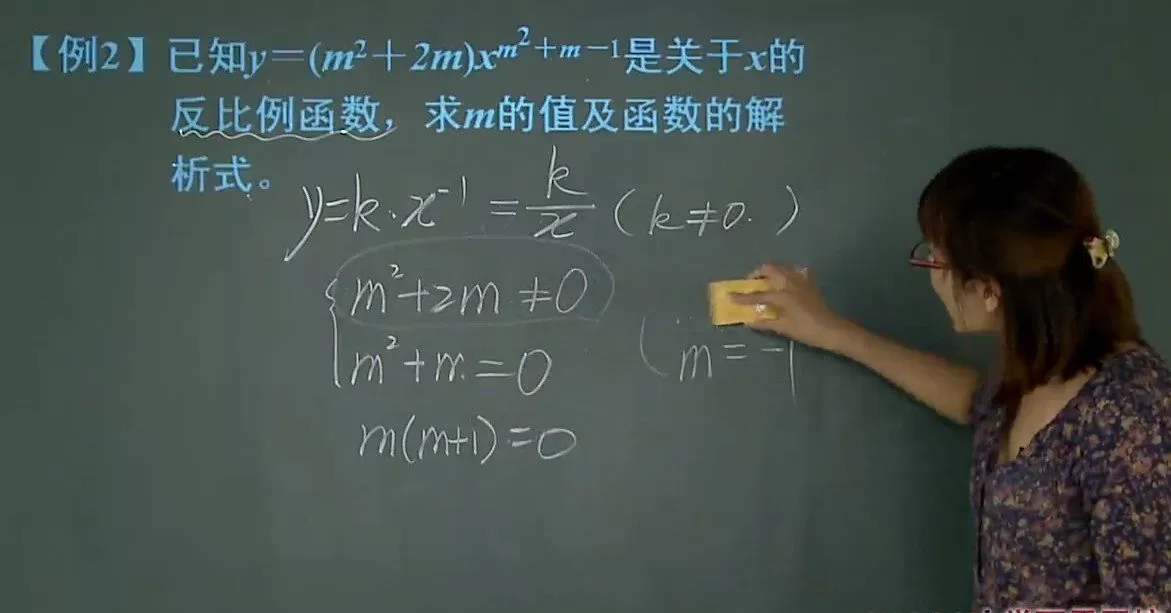 【例2】已知y=(m²+2m)x^{m²+m-1}是关于x的
反比例函数，求m的值及函数的解
析式。
y=k·x⁻¹=k/x (k≠0.)
{m²+2m≠0
m²+m=0
m=-1
m(m+1)=0